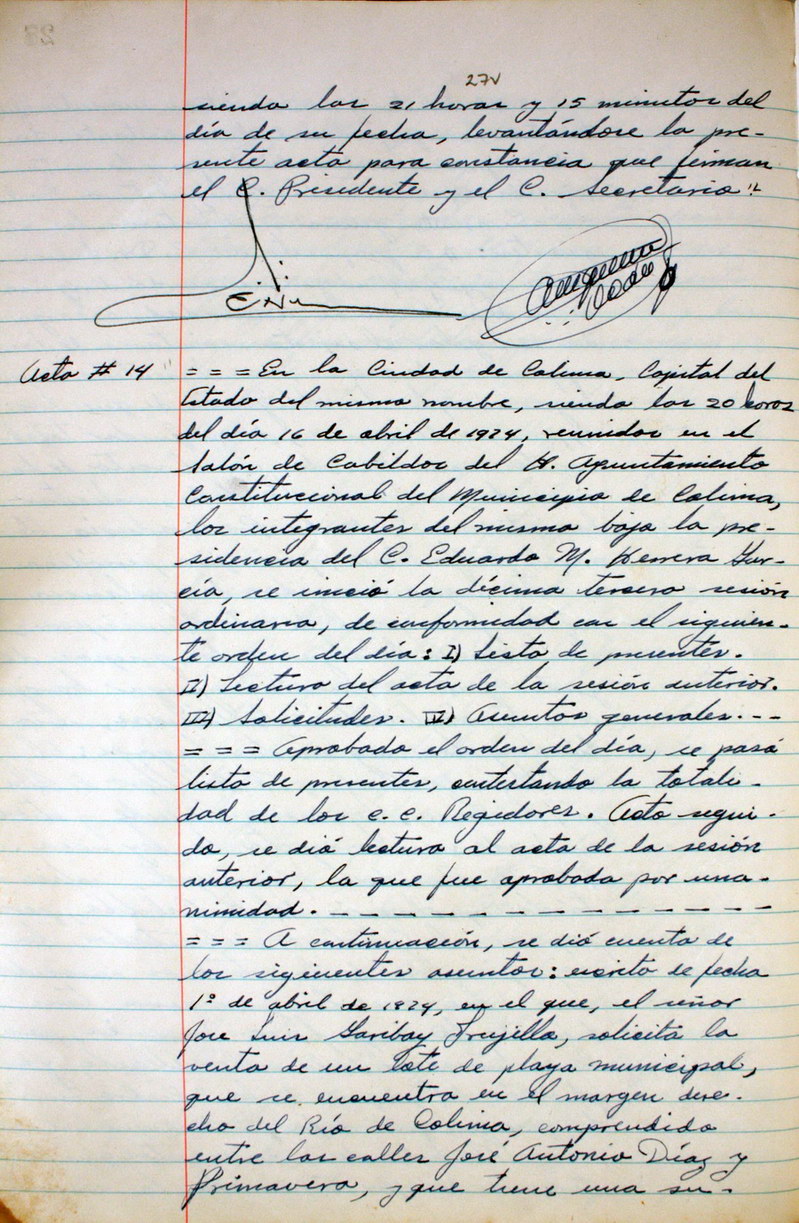 27v
siendo las 21 horas y 15 minutos del
día de su fecha, levantándose la pre-
sente acta para constancia que firman
el C. Presidente y el C. Secretario.
Acta # 14
= = = En la Ciudad de Colima, Capital del
Estado del mismo nombre, siendo las 20 horas
del día 16 de abril de 1974, reunidos en el
Salón de Cabildos del H. Ayuntamiento
Constitucional del Municipio de Colima,
los integrantes del mismo bajo la pre-
sidencia del C. Eduardo M. Herrera Gar-
cía, se inició la décima tercera sesión
ordinaria, de conformidad con el siguien-
te orden del día: I) Lista de presentes.
II) Lectura del acta de la sesión anterior.
III) Solicitudes. IV) Asuntos generales. - -
= = = Aprobado el orden del día, se pasó
lista de presentes, contestando la totali-
dad de los C. C. Regidores. Acto segui-
do, se dió lectura al acta de la sesión
anterior, la que fue aprobada por una-
nimidad. - - - - - - - - - - - - -
= = = A continuación, se dió cuenta de
los siguientes asuntos: escrito de fecha
1º de abril de 1974, en el que, el señor
José Luis Garibay Trujillo, solicita la
venta de un lote de playa municipal,
que se encuentra en el margen dere-
cho del Río de Colima, comprendido
entre las calles José Antonio Díaz y
Primavera, y que tiene una su-